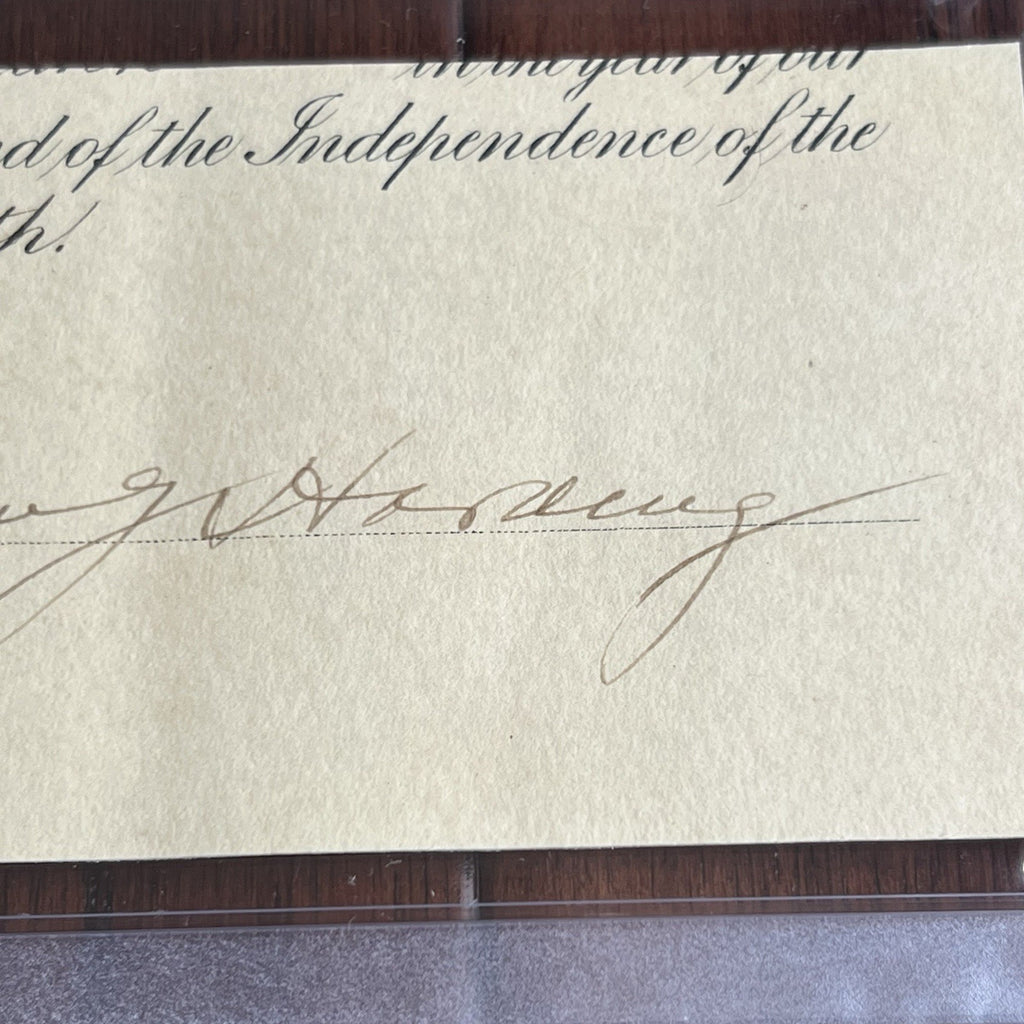 in the year of our
d of the Independence of the
th.
G Harding